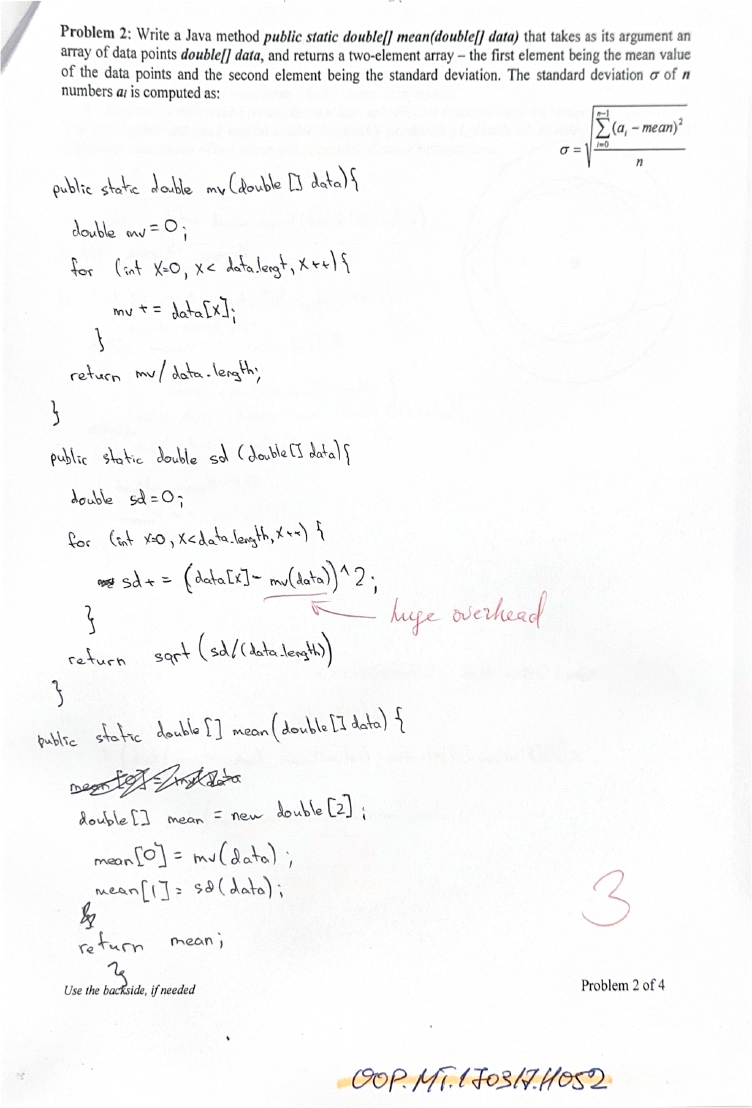 Problem 2: Write a Java method public static double[] mean(double[] data) that takes as its argument an
array of data points double[] data, and returns a two-element array – the first element being the mean value
of the data points and the second element being the standard deviation. The standard deviation σ of n
numbers aᵢ is computed as:
σ = √(∑_{i=0}^{n-1}(aᵢ − mean)² / n)
public static double mv (double [] data){
double mv = 0;
for (int x=0, x< data.lengt, x++){
mv += data[x];
}
return mv/data.length;
}
public static double sd (double[] data){
double sd = 0;
for (int x=0, x<data.length, x++) {
sd += (data[x]- mv(data))^2;
huge overhead
}
return sqrt (sd/(data.length))
}
public static double[] mean(double[] data) {
double[] mean = new double[2];
mean[0] = mv(data);
mean[1] = sd(data);
3
return mean;
}
Use the backside, if needed
Problem 2 of 4
OOP.MT.170317.H052